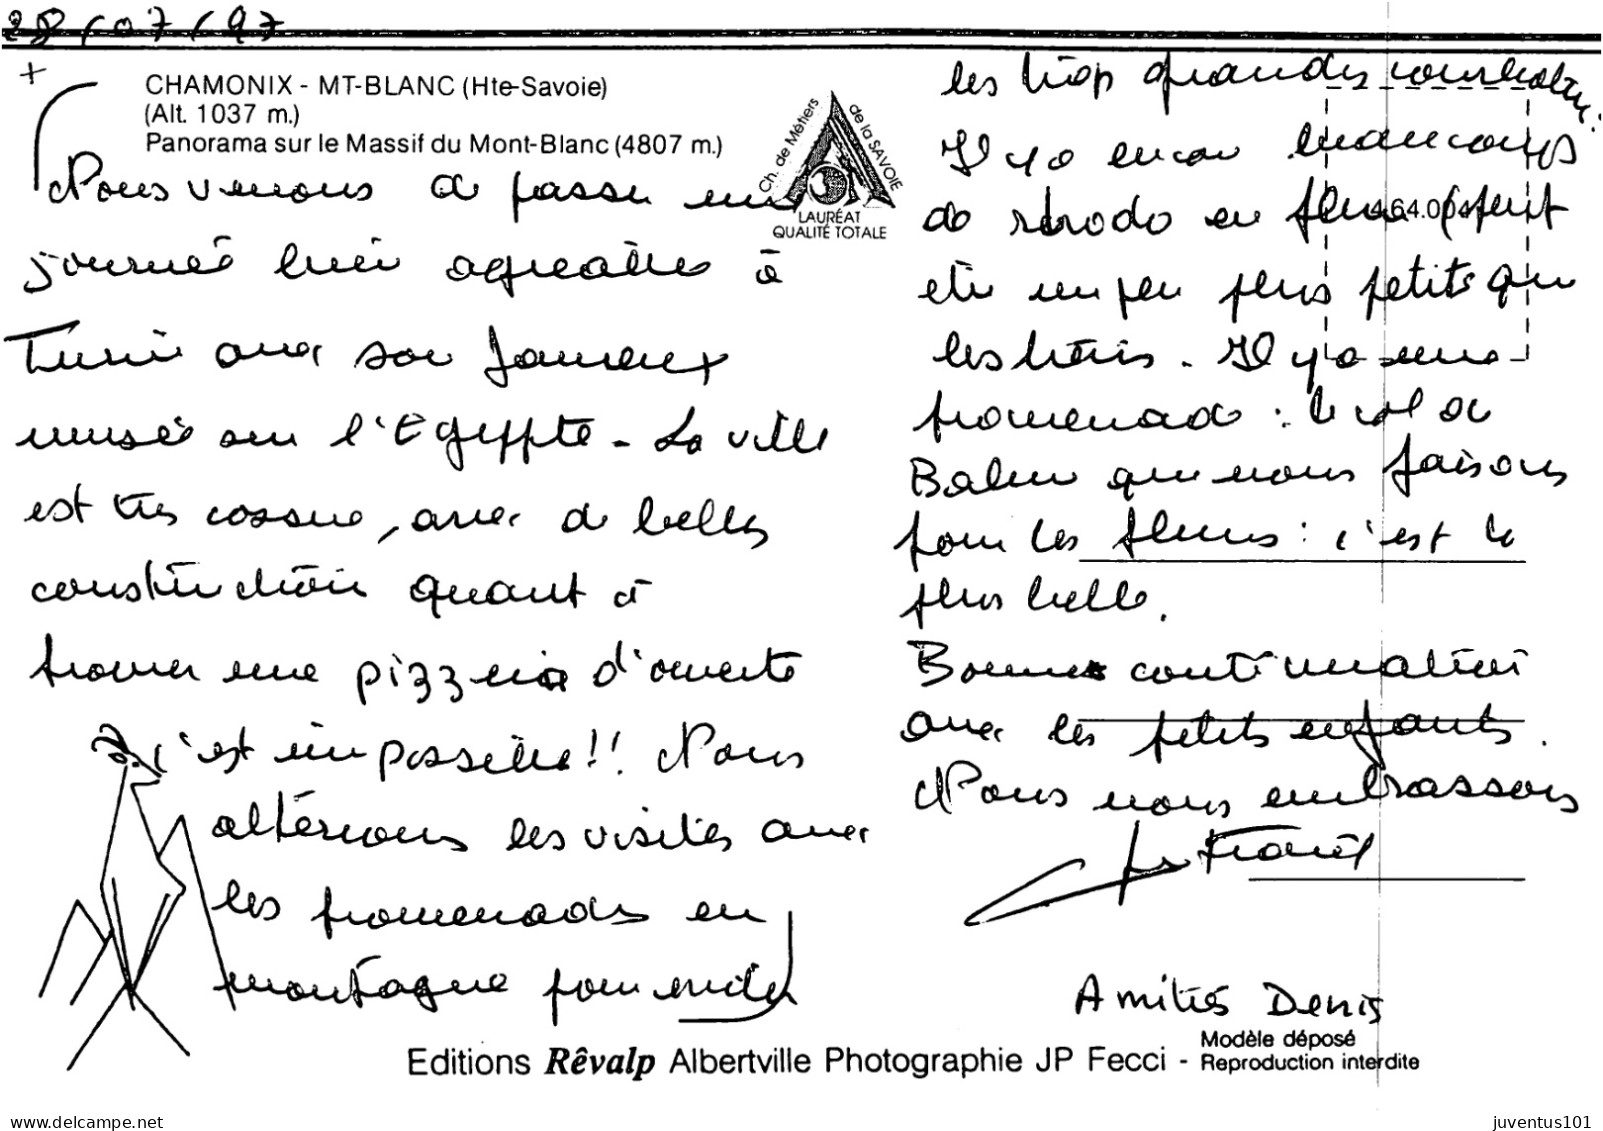 28/07/97
+
CHAMONIX - MT-BLANC (Hte-Savoie)
(Alt. 1037 m.)
Panorama sur le Massif du Mont-Blanc (4807 m.)
Ch. de Métiers de la SAVOIE
LAURÉAT
QUALITÉ TOTALE
Nous venons de passer une
journée bien agréable à
Turin avec son fameux
musée sur l'Egyppte - La ville
est très cossue, avec de belles
construction quant à
trouver une pizzeria d'ouverte
c'est impossible!! Nous
alternons les visites avec
les promenades en
montagne pour eviter
les trop grandes courbatur.
Il y a encore beaucoups
de rhodo en fleur peut
464.004
etre un peu plus petits que
les notres. Il y a une
promenade : le col de
Balme que nous faisons
pour les fleurs : c'est la
plus belle.
Bonnes continuation
avec les petits enfants.
Nous vous embrassons
Amitiés Denis
Editions Rêvalp Albertville Photographie JP Fecci -
Modèle déposé
Reproduction interdite
www.delcampe.net
juventus101